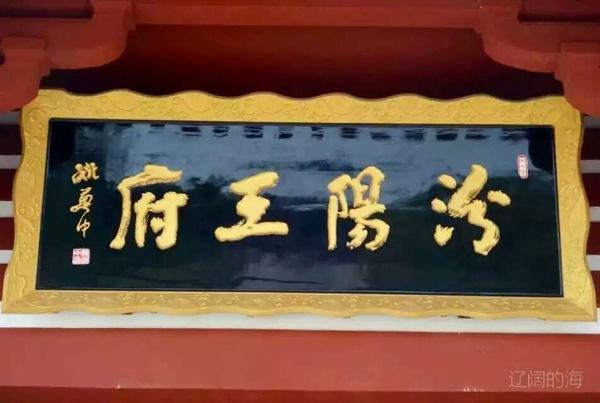 汾陽王府
姚奠中
辽阔的海